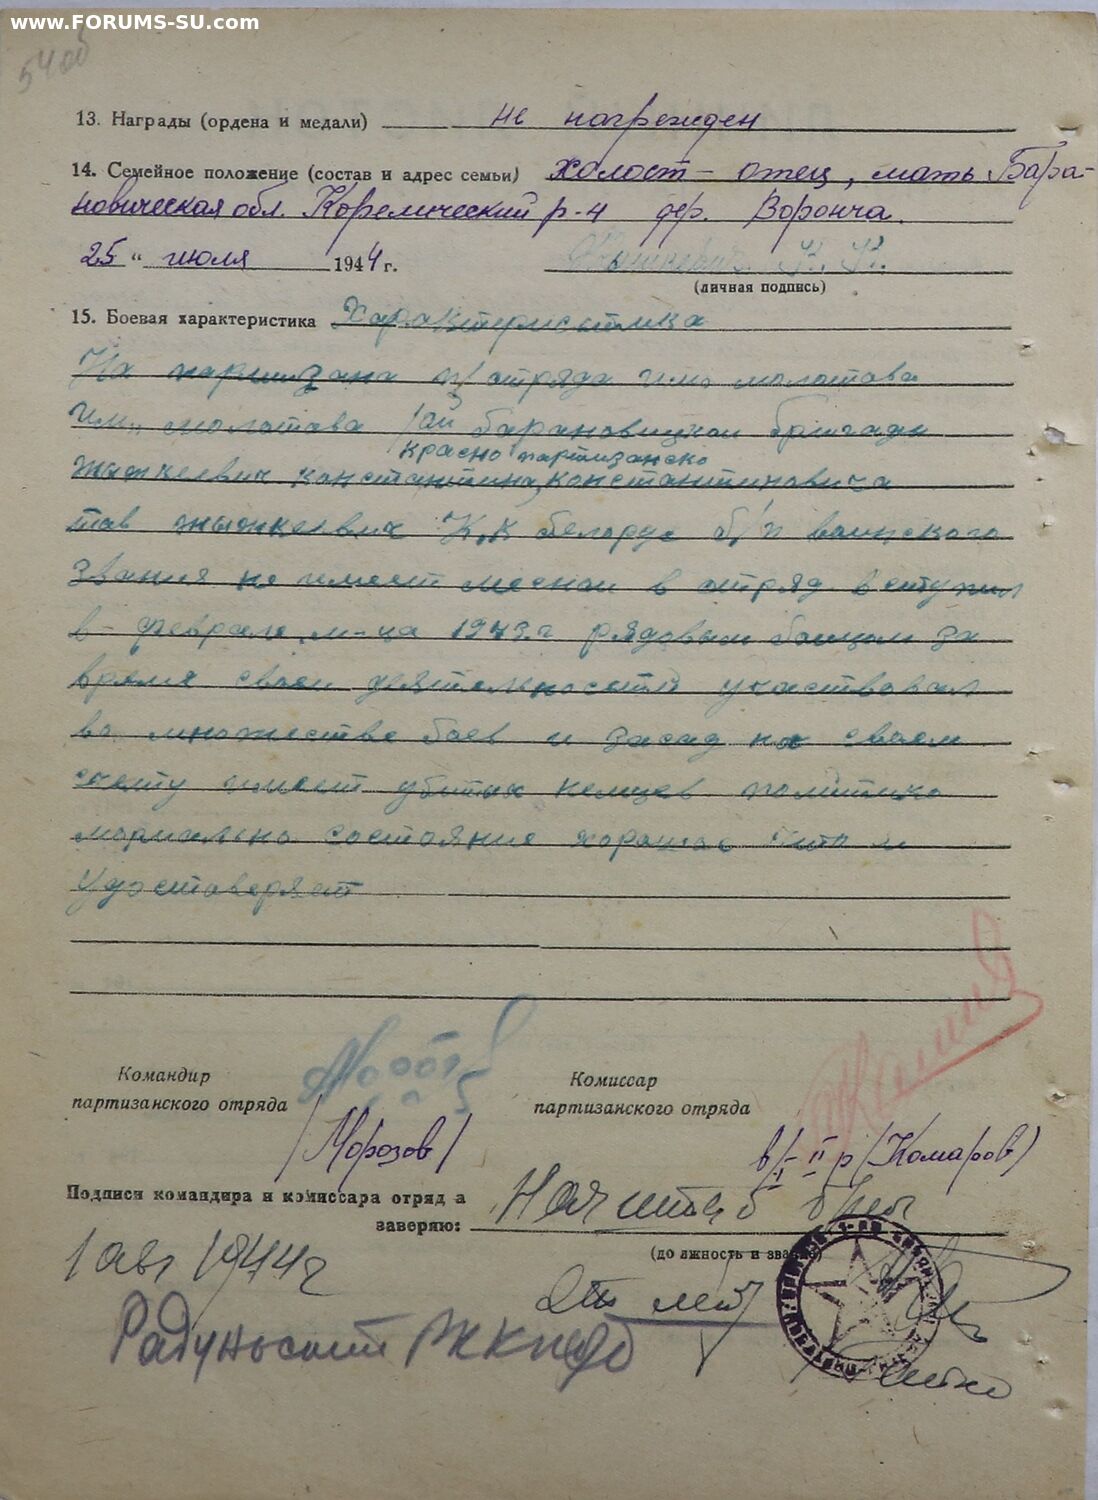 www.FORUMS-SU.com
54об
13. Награды (ордена и медали) не награжден
14. Семейное положение (состав и адрес семьи) холост – отец, мать Бара-
новическая обл. Корелический р-н дер. Воронча.
25 " июля 1944 г.
К. К.
(личная подпись)
15. Боевая характеристика Характеристика
На партизана п/отряда имо молотова
им. молотова 1ой барановицкои бригады
красно партизанско
констаньтина, константиновича
тав К,К белорус б/п воинского
звания не имеет меснои в отряд вступил
в – феврале м-ца 1943 г рядовым боицом за
время своеи деятельности участвовал
во множестве боев и засад на сваем
счету имеет убитых немцев политико
моральна состояние харошае
Удоставеряет
Командир
партизанского отряда
/Морозов/
Комиссар
партизанского отряда
(Комаров)
Подписи командира и комиссара отряда
заверяю: Нач штаб б-ды
(должность и звание)
1 авг 1944 г